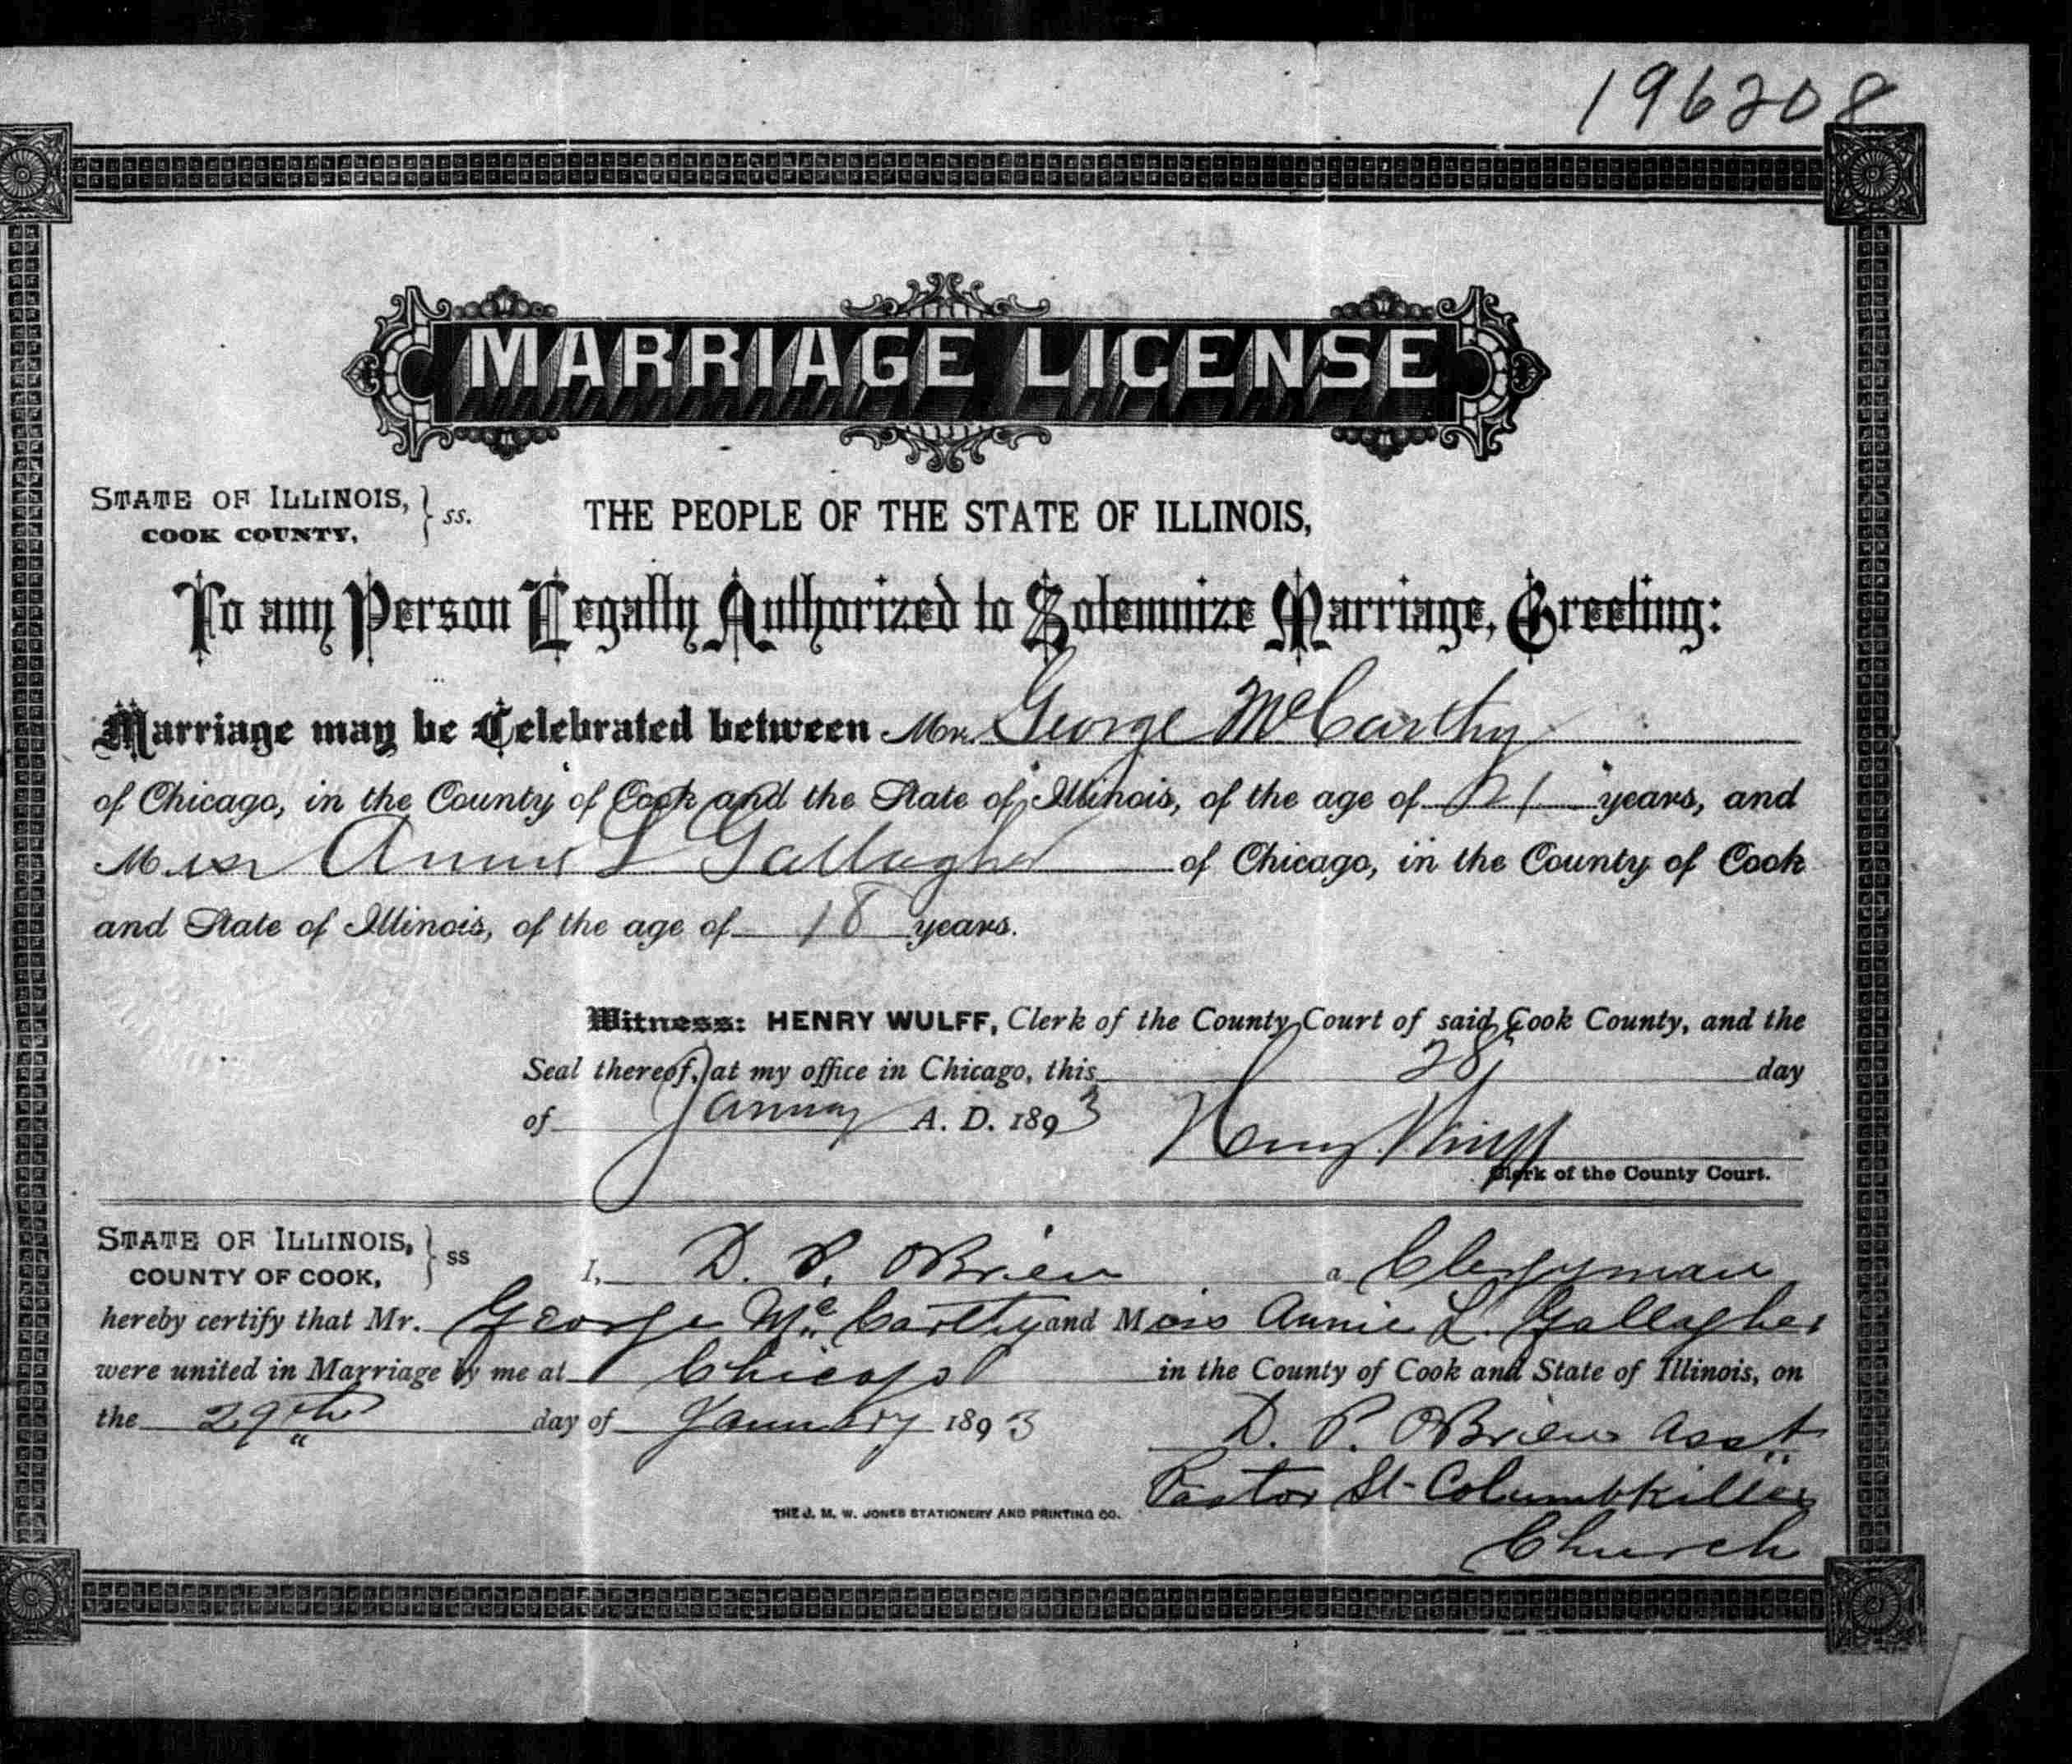 196208
MARRIAGE LICENSE
STATE OF ILLINOIS, } ss.
COOK COUNTY,
THE PEOPLE OF THE STATE OF ILLINOIS,
To any Person Legally Authorized to Solemnize Marriage, Greeting:
Marriage may be Celebrated between Mr. George McCarthy
of Chicago, in the County of Cook and the State of Illinois, of the age of 21 years, and
Miss Annie L Gallagher of Chicago, in the County of Cook
and State of Illinois, of the age of 18 years.
Witness: HENRY WULFF, Clerk of the County Court of said Cook County, and the
Seal thereof, at my office in Chicago, this 28 day
of January A. D. 1893 Henry Wulff
Clerk of the County Court.
STATE OF ILLINOIS, } ss
COUNTY OF COOK,
I, D. P. OBrien a Clergyman
hereby certify that Mr. George McCarthy and Miss Annie L. Gallagher
were united in Marriage by me at Chicago in the County of Cook and State of Illinois, on
the 29th day of January 1893 D. P. OBrien Asst
Pastor St-Columbkilles
Church
THE J. M. W. JONES STATIONERY AND PRINTING CO.